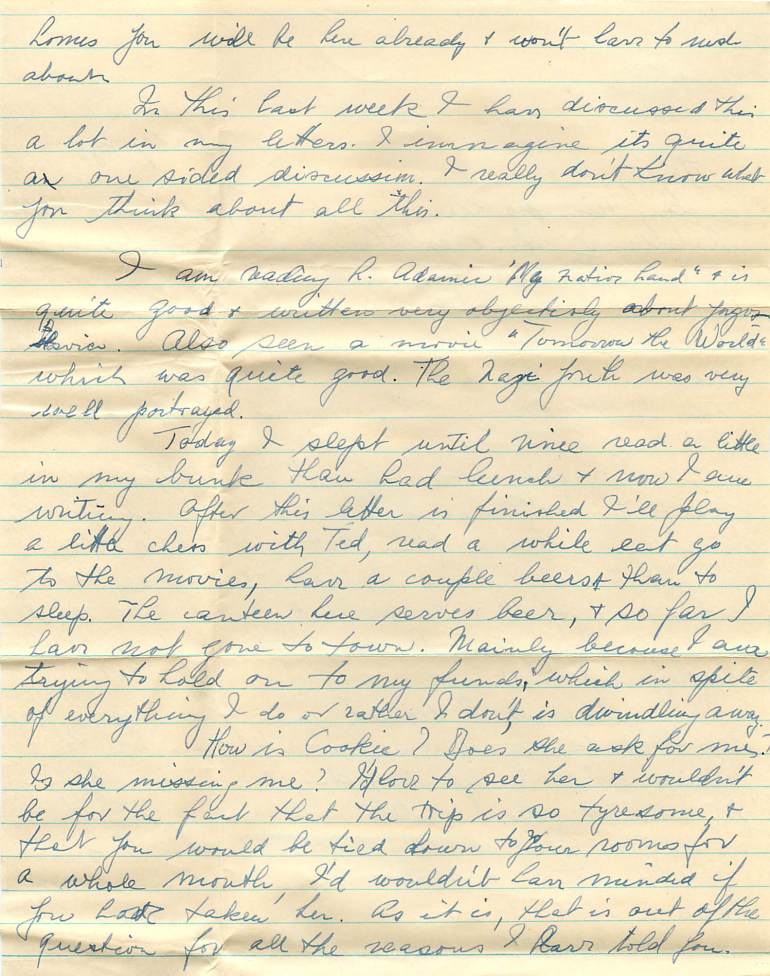 homes you will be here already & won't have to rush
about.
In this last week I have discussed this
a lot in my letters. I immagine its quite
a one sided discussion. I really don't know what
you think about all this.
I am reading L. Adamic "My Native Land" & is
quite good & written very objectively about Yugos
slavia. Also seen a movie "Tomorrow the World"
which was quite good. The Nazi Youth was very
well portrayed.
Today I slept until nine read a little
in my bunk than had lunch & now I am
writing. After this letter is finished I'll play
a little chess with Ted, read a while eat go
to the movies, have a couple beers & than to
sleep. The canteen here serves beer, & so far I
have not gone to town. Mainly because I am
trying to hold on to my funds, which in spite
of everything I do or rather I don't, is dwindling away.
How is Cookie? Does she ask for me?
Is she missing me? I'd love to see her & wouldn't
be for the fact that the trip is so tyresome, &
that you would be tied down to your rooms for
a whole month, I'd wouldn't have minded if
you had taken her. As it is, that is out of the
question for all the reasons I have told you.